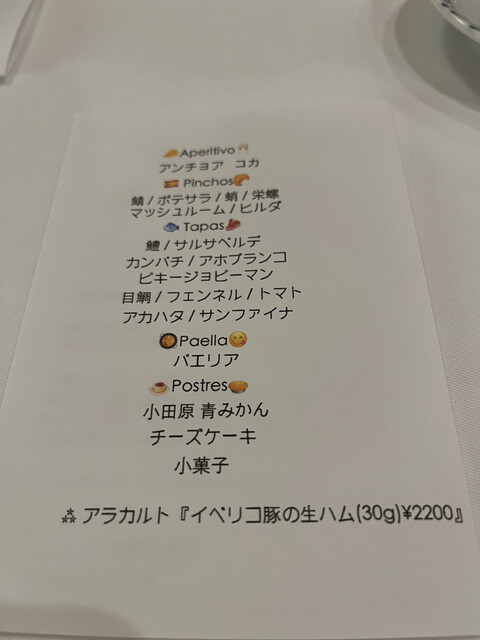 🥖Aperitivo🥂
アンチョア コカ
🇪🇸Pinchos🥐
鯖/ポテサラ/蛸/栄螺
マッシュルーム/ヒルダ
🐟Tapas🍖
鱧/サルサベルデ
カンパチ/アホブランコ
ピキージョピーマン
目鯛/フェンネル/トマト
アカハタ/サンファイナ
🥘Paella😋
パエリア
🍮Postres🥧
小田原 青みかん
チーズケーキ
小菓子
⁂ アラカルト『イベリコ豚の生ハム(30g)¥2200』